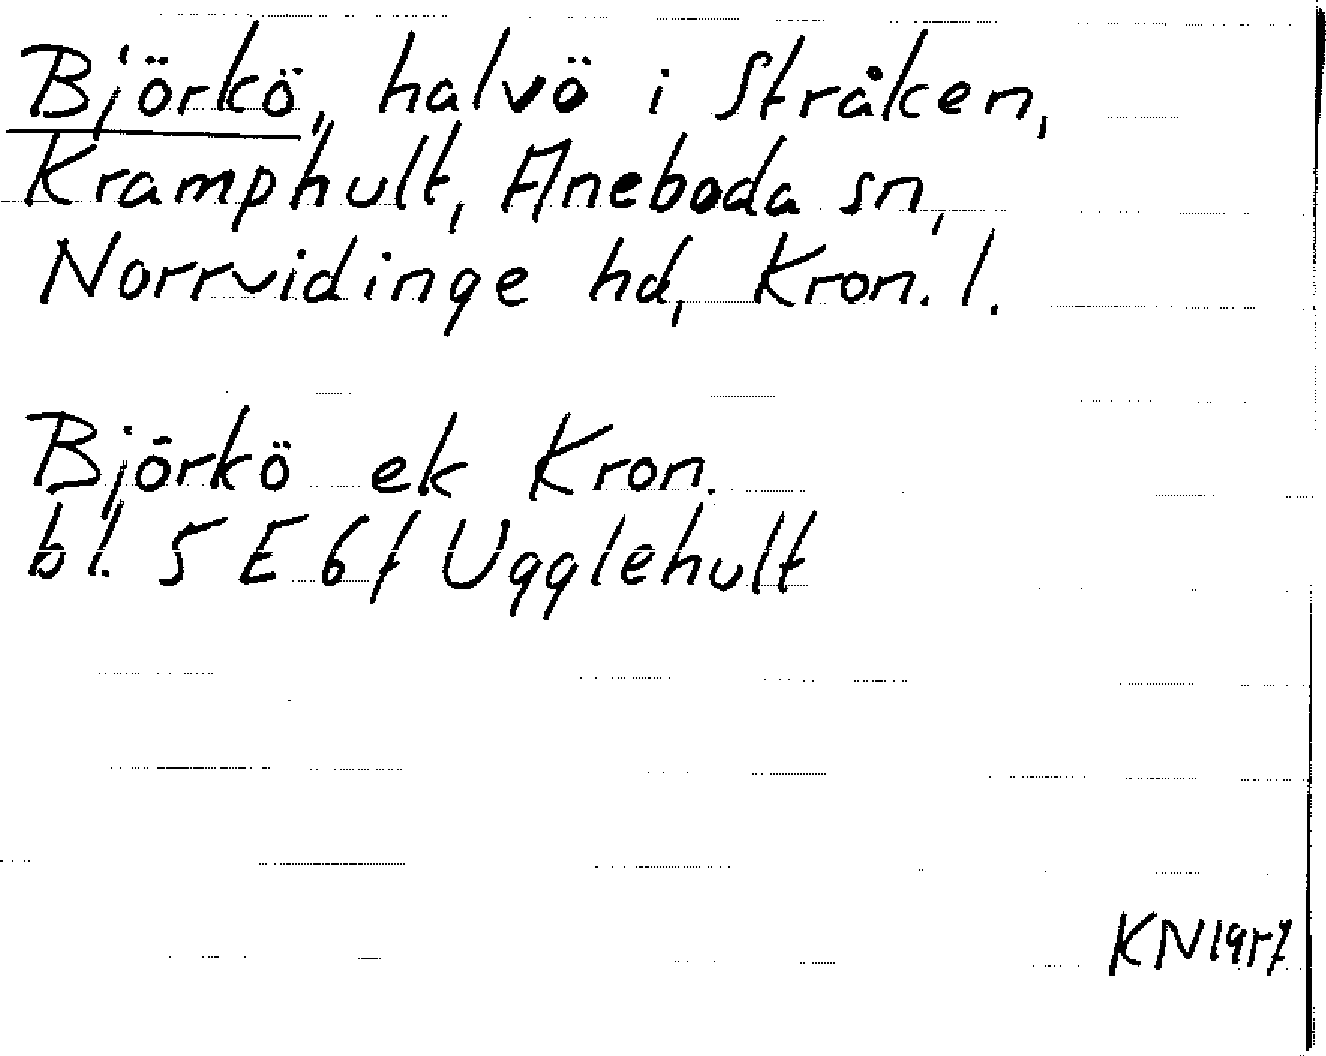 Björkö, halvö i Stråken,
Kramphult, Aneboda sn,
Norrvidinge hd, Kron. l.
Björkö ek Kron.
bl. 5 E 6 f Ugglehult
KN 1957